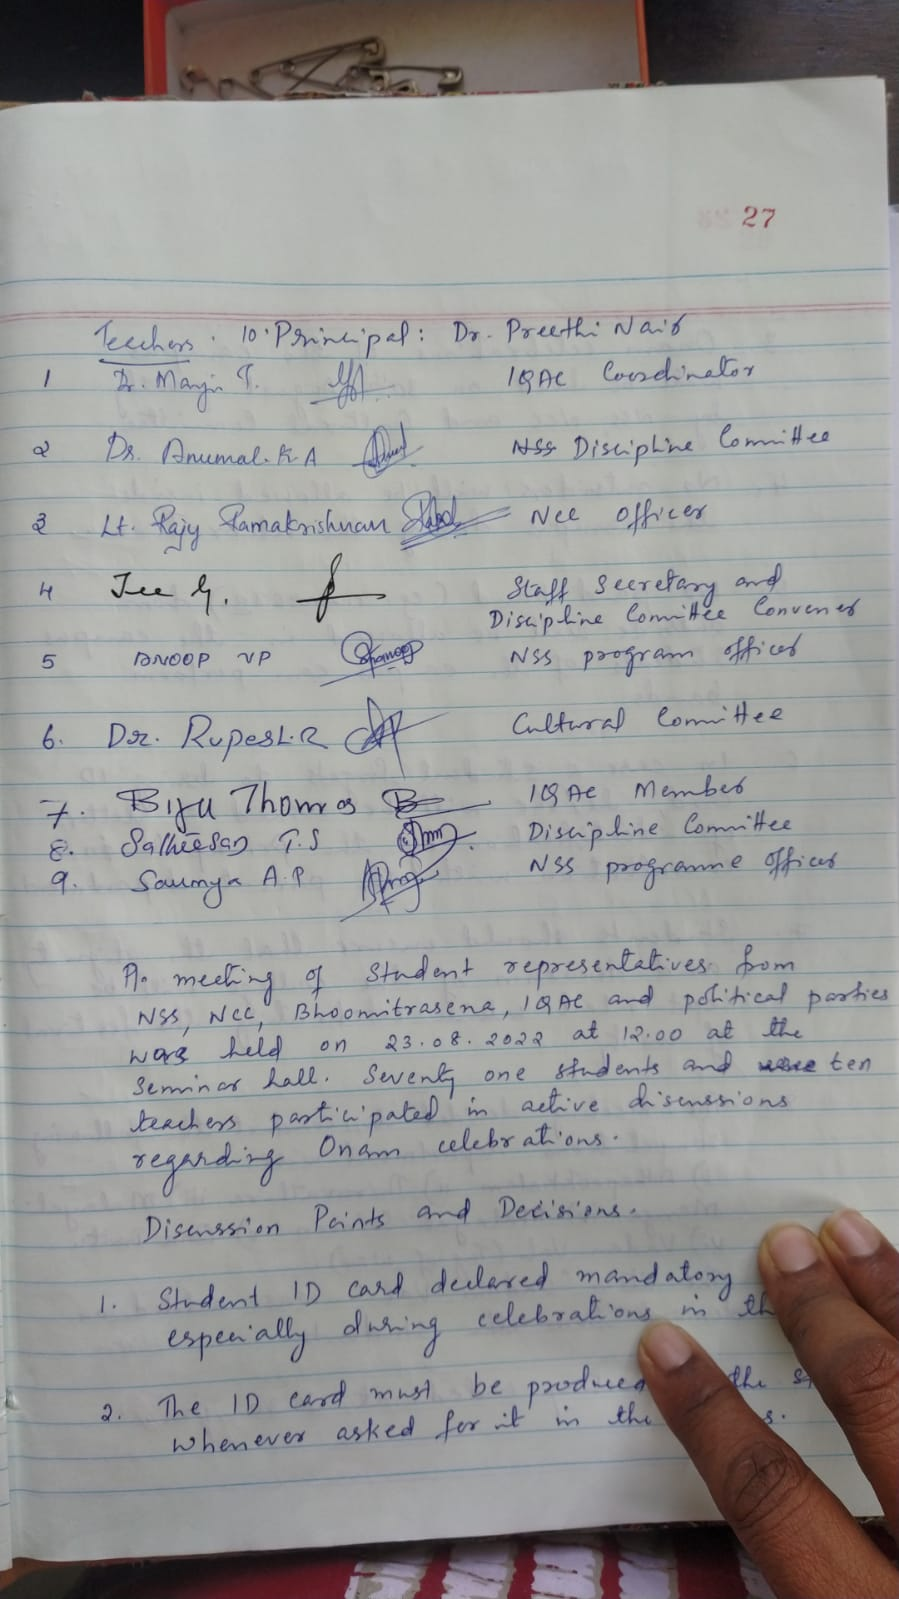 27
Teachers. 10. Principal: Dr. Preethi Nair
1 Dr. Manju T. IQAC Coordinator
2 Dr. Anumal. K A Discipline Committee
3 Lt. Rajy Ramakrishnan NCC Officer
4 Jee G. Staff Secretary and
Discipline Committee Convener
5 ANOOP VP NSS program officer
6. Dr. Rupesh.R Cultural Committee
7. Biju Thomas IQAC Member
8. Satheesan T.S Discipline Committee
9. Saumya A.P NSS programme officer
A meeting of Student representatives from
NSS, NCC, Bhoomitrasena, IQAC and political parties
was held on 23.08.2022 at 12.00 at the
seminar hall. Seventy one students and ten
teachers participated in active discussions
regarding Onam celebrations.
Discussion Points and Decisions.
1. Student ID card declared mandatory
especially during celebrations in
2. The ID card must be produced the
whenever asked for it in the